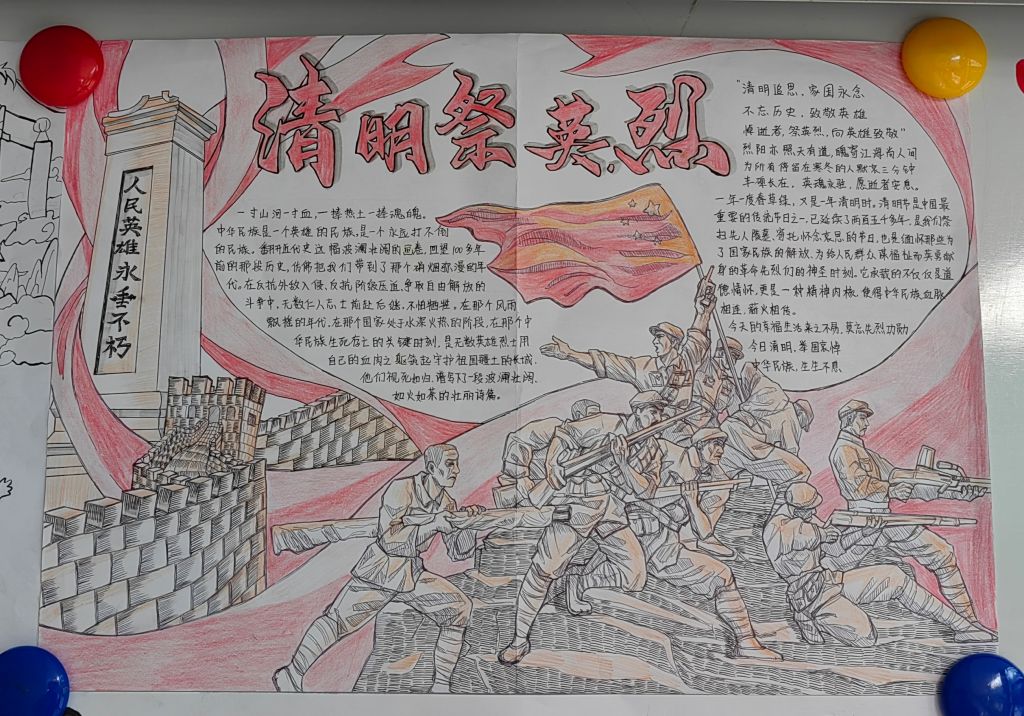 清明祭英烈
人民英雄永垂不朽
一寸山河一寸血,一捧热土一捧魂魄。
中华民族是一个英雄的民族,是一个永远打不倒
的民族。翻开近代史这幅波澜壮阔的画卷,回望100多年
前的那段历史,仿佛把我们带到了那个硝烟弥漫的年
代。在反抗外敌入侵、反抗阶级压迫、争取自由解放的
斗争中,无数仁人志士前赴后继,不怕牺牲,在那个风雨
飘摇的年代,在那个国家处于水深火热的阶段,在那个中
华民族生死存亡的关键时刻,是无数英雄烈士用
自己的血肉之躯筑起守护祖国疆土的长城,
他们视死如归,谱写下一段波澜壮阔、
如火如荼的壮丽诗篇。
"清明追思,家国永念
不忘历史,致敬英雄
悼逝者,祭英烈,向英雄致敬"
烈阳亦照天有道,魄寄江海尚人间
为所有停留在寒冬的人默哀三分钟
丰碑永在,英魂永驻,愿逝者安息。
一年一度春草绿,又是一年清明时,清明节是中国最
重要的传统节日之一,已延续了两百五十多年,是我们祭
扫先人陵墓、寄托怀念哀思的节日,也是缅怀那些为
了国家民族的解放、为给人民群众谋福祉而英勇献
身的革命先烈们的神圣时刻。它承载的不仅仅是道
德情怀,更是一种精神内核,使得中华民族血脉
相连,薪火相传。
今天的幸福生活来之不易,莫忘先烈功勋
今日清明,举国哀悼
中华民族,生生不息